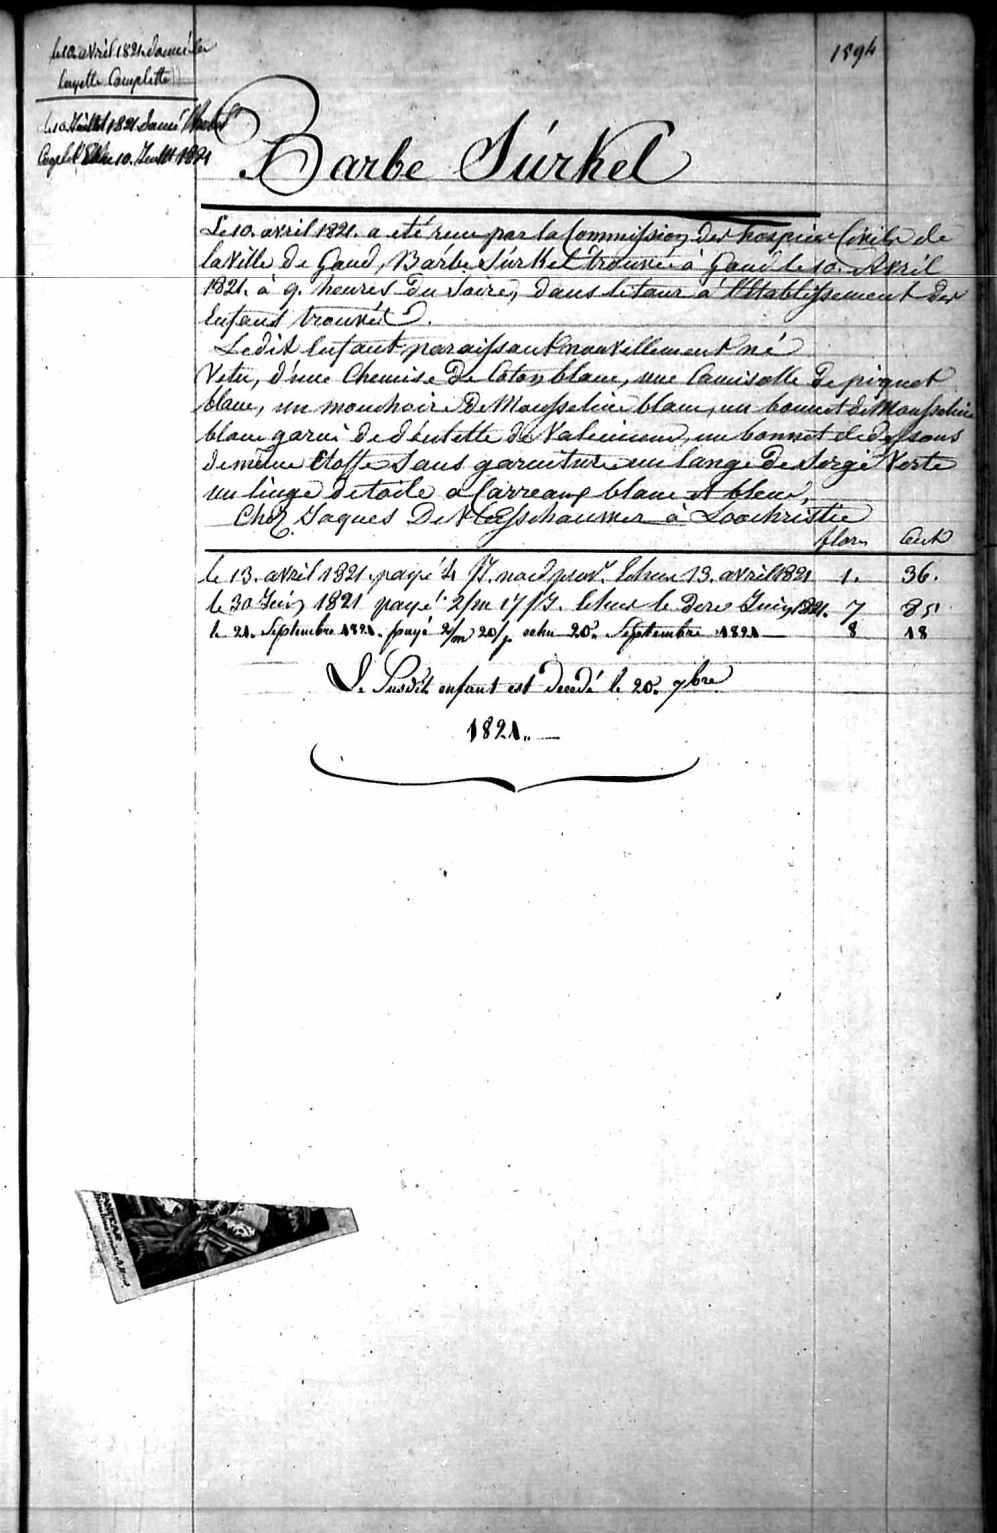 1894
le 10 avril 1821 donné la
layette Complette
le 10 Juillet 1821 Donné
10. Juillet 1821
Barbe Súrkel
Le 10. avril 1821. a eté reçu par la Commission des hospices Civils de
la ville de Gand, Barbe Súrkel trouvée à Gand le 10. Avril
1821. à 9. heures du Soire, dans le tour à l'Etablissement des
Enfans trouvés.
Ledit Enfant paraissant nouvellement né
Vetu, d'une Chemise de Coton blanc, une Camisolle de piquet
blanc, un mouchoir De Mousseline blanc, un bonnet de Mousseline
blanc garni de dentelle de Valencienne, un bonnet de dessous
de même Etoffe Sans garniture un lange De Serge Verte
un linge de toile a Carreaux blanc et bleu,
Chez Jaques De à Loochristie
flors Cent
le 13. avril 1821. payé 4 13. avril 1821 1. 36.
le 30 Juin 1821 payé 2/m 17/J. Echus le dere Juin 1821. 7 85
le 21. Septembre 1821. payé 2/m 20/j echu 20. Septembre 1821 8 18
Le Susdit enfant est decedé le 20. 7bre
1821.